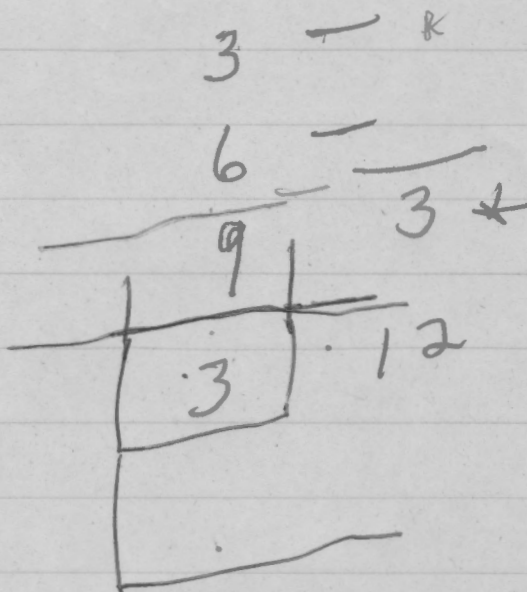 3 — k
6 —
3 *
9
.3 . 12